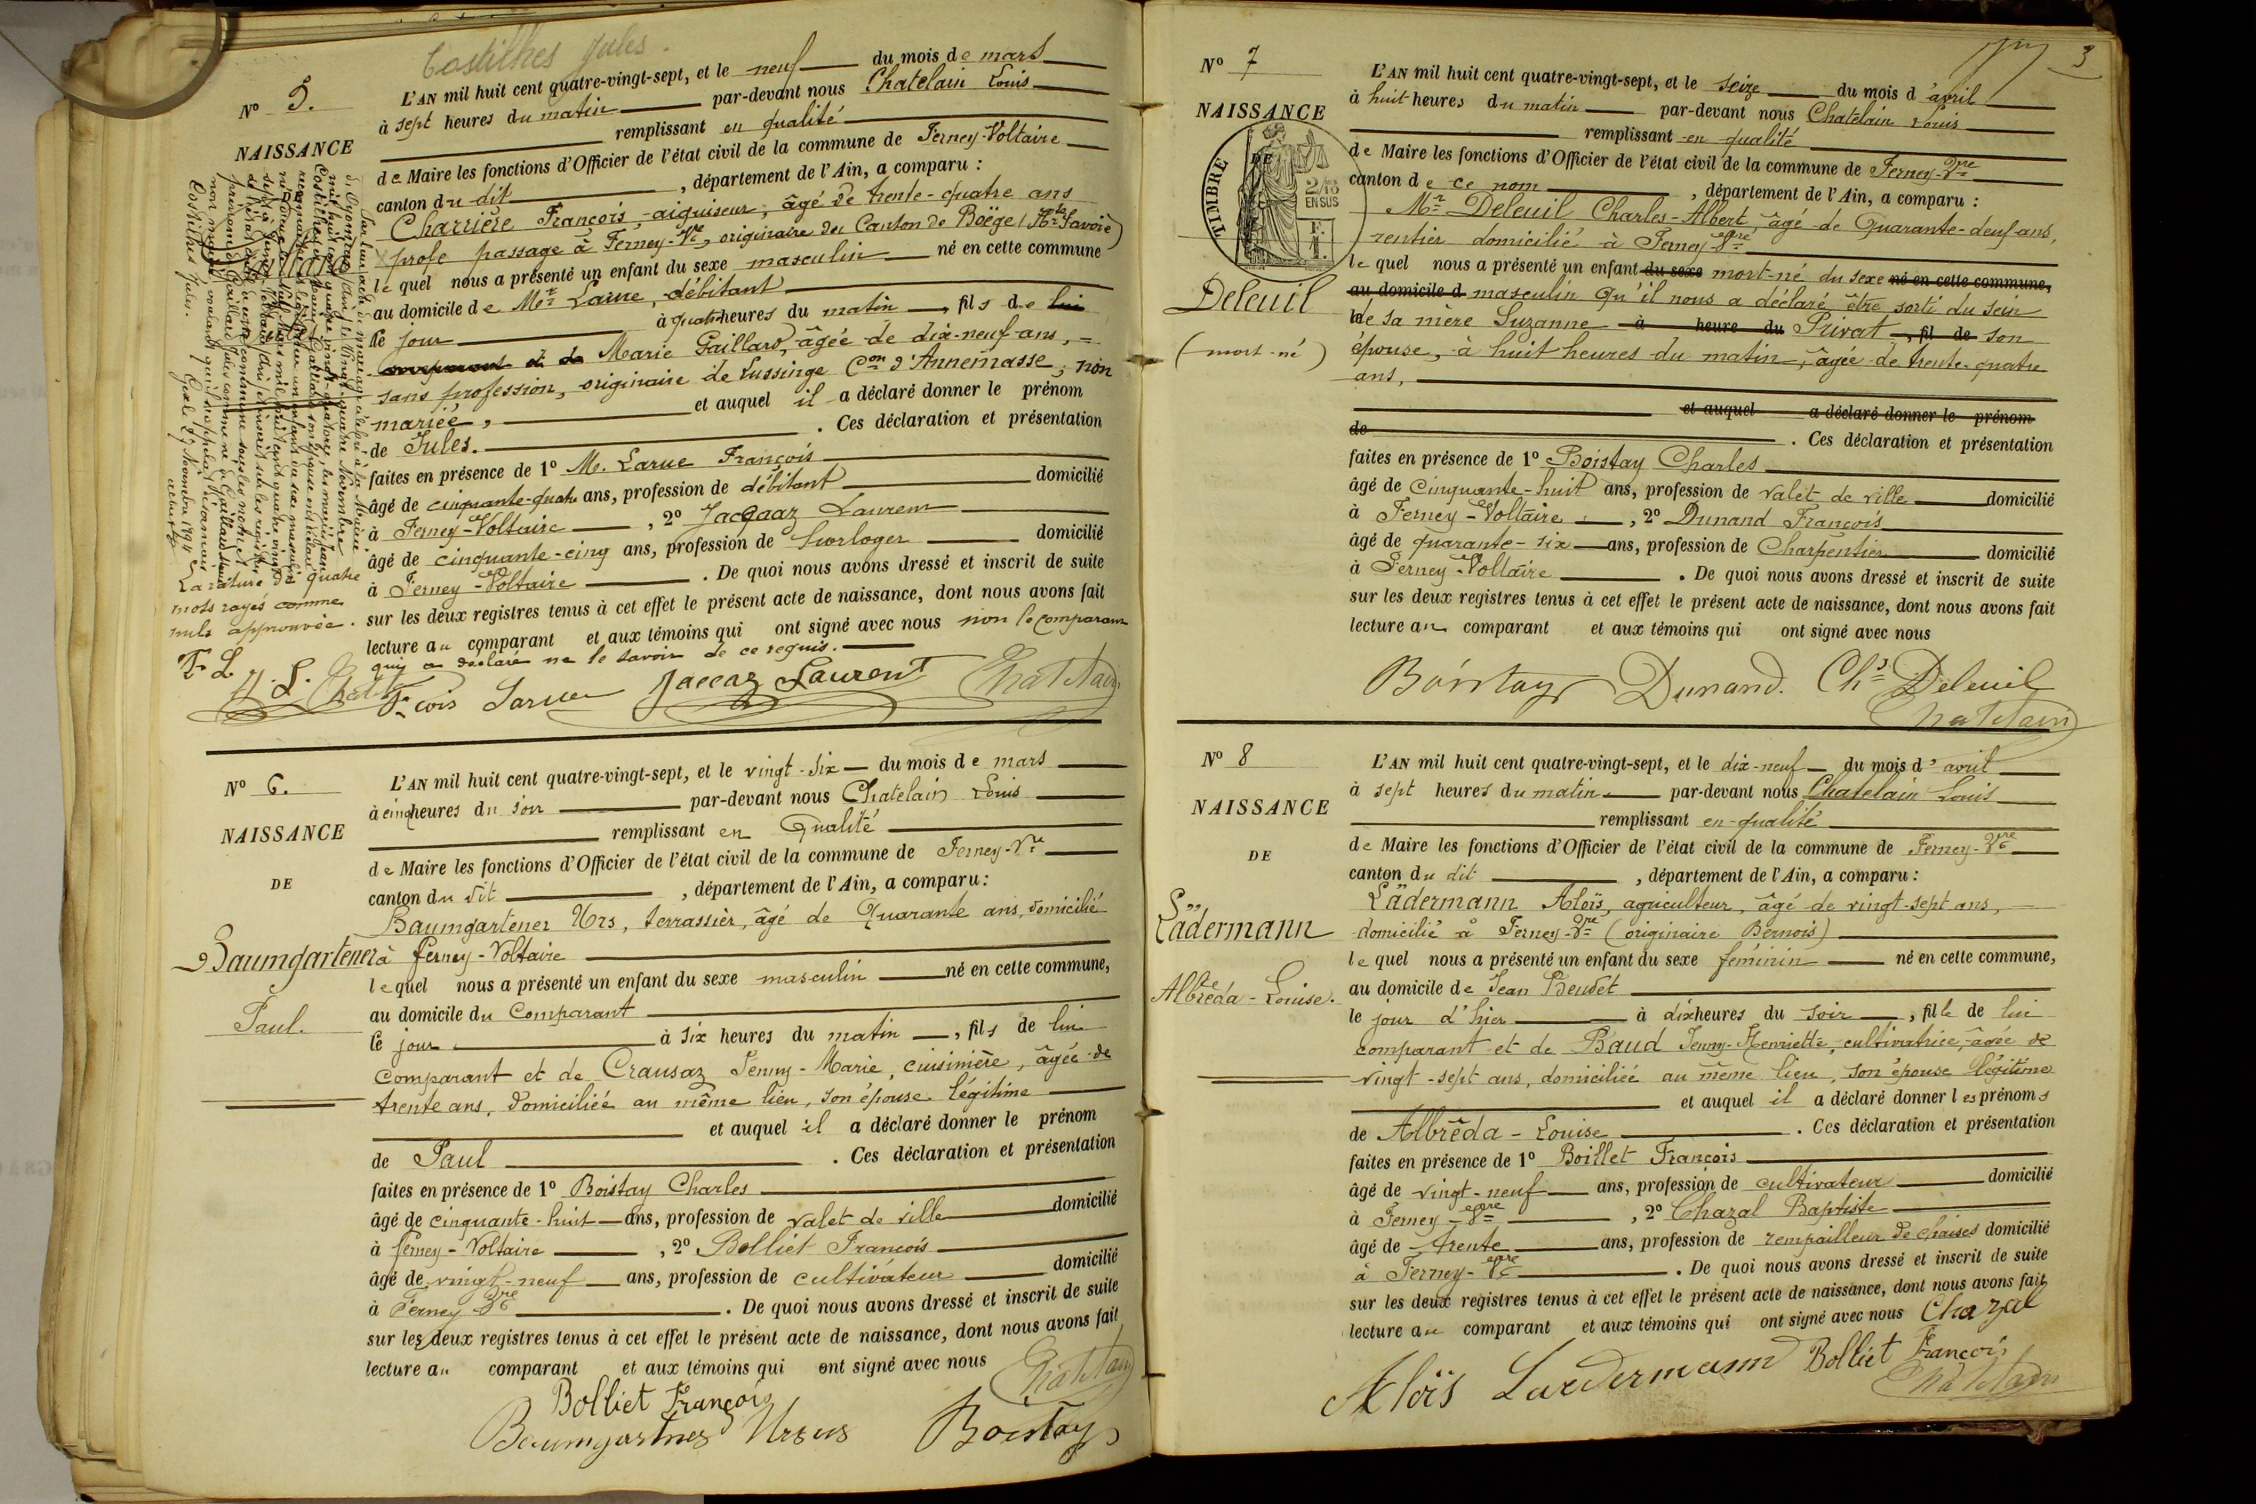 Costilhes Jules.
N° 5.
NAISSANCE
L'AN mil huit cent quatre-vingt-sept, et le neuf du mois de mars
à sept heures du matin par-devant nous Chatelain Louis
remplissant en qualité
de Maire les fonctions d'Officier de l'état civil de la commune de Ferney-Voltaire
canton du dit, département de l'Ain, a comparu :
Charrière François, aiguiseur, âgé de trente-quatre ans
profe passage à Ferney-Vre, originaire du Canton de Boëge (Hte Savoie)
le quel nous a présenté un enfant du sexe masculin né en cette commune
au domicile de Mr Larue, débitant
le jour à quatre heures du matin, fils de lui
comparant et de Marie Gaillard, âgée de dix-neuf ans,
sans profession, originaire de Lussinge Con d'Annemasse, non
mariée, et auquel il a déclaré donner le prénom
de Jules. Ces déclaration et présentation
faites en présence de 1° M. Larue François
âgé de cinquante-quatre ans, profession de débitant domicilié
à Ferney-Voltaire, 2° Jacquaz Laurent
âgé de cinquante-cinq ans, profession de horloger domicilié
à Ferney-Voltaire. De quoi nous avons dressé et inscrit de suite
sur les deux registres tenus à cet effet le présent acte de naissance, dont nous avons fait
lecture au comparant et aux témoins qui ont signé avec nous non le comparant
qui a déclaré ne le savoir de ce requis.
La rature de quatre
mots rayés comme
nuls approuvée.
F. L. J. L. Chat
Fcois Larue Jaccaz Laurent Chatelain
N° 6.
NAISSANCE
DE
Baumgartener
Paul.
L'AN mil huit cent quatre-vingt-sept, et le vingt-six du mois de mars
à cinq heures du soir par-devant nous Chatelain Louis
remplissant en Qualité
de Maire les fonctions d'Officier de l'état civil de la commune de Ferney-Vre
canton du dit, département de l'Ain, a comparu :
Baumgartener Urs, terrassier, âgé de Quarante ans, domicilié
à Ferney-Voltaire
le quel nous a présenté un enfant du sexe masculin né en cette commune,
au domicile du Comparant
le jour à six heures du matin, fils de lui
comparant et de Crausaz Jenny-Marie, cuisinière, âgée de
trente ans, domiciliée au même lieu, son épouse légitime
et auquel il a déclaré donner le prénom
de Paul. Ces déclaration et présentation
faites en présence de 1° Boistay Charles
âgé de cinquante-huit ans, profession de valet de ville domicilié
à Ferney-Voltaire, 2° Bolliet François
âgé de vingt-neuf ans, profession de cultivateur domicilié
à Ferney Vre. De quoi nous avons dressé et inscrit de suite
sur les deux registres tenus à cet effet le présent acte de naissance, dont nous avons fait
lecture au comparant et aux témoins qui ont signé avec nous Chatelain
Bolliet François
Baumgartner Ursus Boistay
3
N° 7
NAISSANCE
DE
TIMBRE
2/10
EN SUS
F.
1.
Deleuil
(mort-né)
L'AN mil huit cent quatre-vingt-sept, et le seize du mois d'avril
à huit heures du matin par-devant nous Chatelain Louis
remplissant en qualité
de Maire les fonctions d'Officier de l'état civil de la commune de Ferney-Vre
canton de ce nom, département de l'Ain, a comparu :
Mr Deleuil Charles-Albert, âgé de Quarante-deux ans,
rentier domicilié à Ferney-Vre
le quel nous a présenté un enfant du sexe mort-né du sexe né en cette commune,
au domicile d masculin qu'il nous a déclaré être sorti du sein
de sa mère Suzanne à heure du Privat, fil de son
épouse, à huit heures du matin, âgée de trente-quatre
ans,
et auquel a déclaré donner le prénom
de. Ces déclaration et présentation
faites en présence de 1° Boistay Charles
âgé de Cinquante-huit ans, profession de valet de ville domicilié
à Ferney-Voltaire, 2° Dunand François
âgé de quarante-six ans, profession de Charpentier domicilié
à Ferney-Voltaire. De quoi nous avons dressé et inscrit de suite
sur les deux registres tenus à cet effet le présent acte de naissance, dont nous avons fait
lecture au comparant et aux témoins qui ont signé avec nous
Boistay Dunand. Chs Deleuil
Chatelain
N° 8
NAISSANCE
DE
Lädermann
Albréda-Louise.
L'AN mil huit cent quatre-vingt-sept, et le dix-neuf du mois d'avril
à sept heures du matin par-devant nous Chatelain Louis
remplissant en qualité
de Maire les fonctions d'Officier de l'état civil de la commune de Ferney-Vre
canton du dit, département de l'Ain, a comparu :
Lädermann Aloïs, agriculteur, âgé de vingt-sept ans,
domicilié à Ferney-Vre (originaire Bernois)
le quel nous a présenté un enfant du sexe féminin né en cette commune,
au domicile de Jean Beudet
le jour d'hier à dix heures du soir, fille de lui
comparant et de Baud Jenny-Henriette, cultivatrice, âgée de
vingt-sept ans, domiciliée au même lieu, son épouse légitime
et auquel il a déclaré donner les prénoms
de Albréda-Louise. Ces déclaration et présentation
faites en présence de 1° Boillet François
âgé de vingt-neuf ans, profession de cultivateur domicilié
à Ferney-Vre, 2° Chazal Baptiste
âgé de trente ans, profession de rempailleur de chaises domicilié
à Ferney-Vre. De quoi nous avons dressé et inscrit de suite
sur les deux registres tenus à cet effet le présent acte de naissance, dont nous avons fait
lecture au comparant et aux témoins qui ont signé avec nous Chazal
Aloïs Laedermann Bolliet François
Chatelain